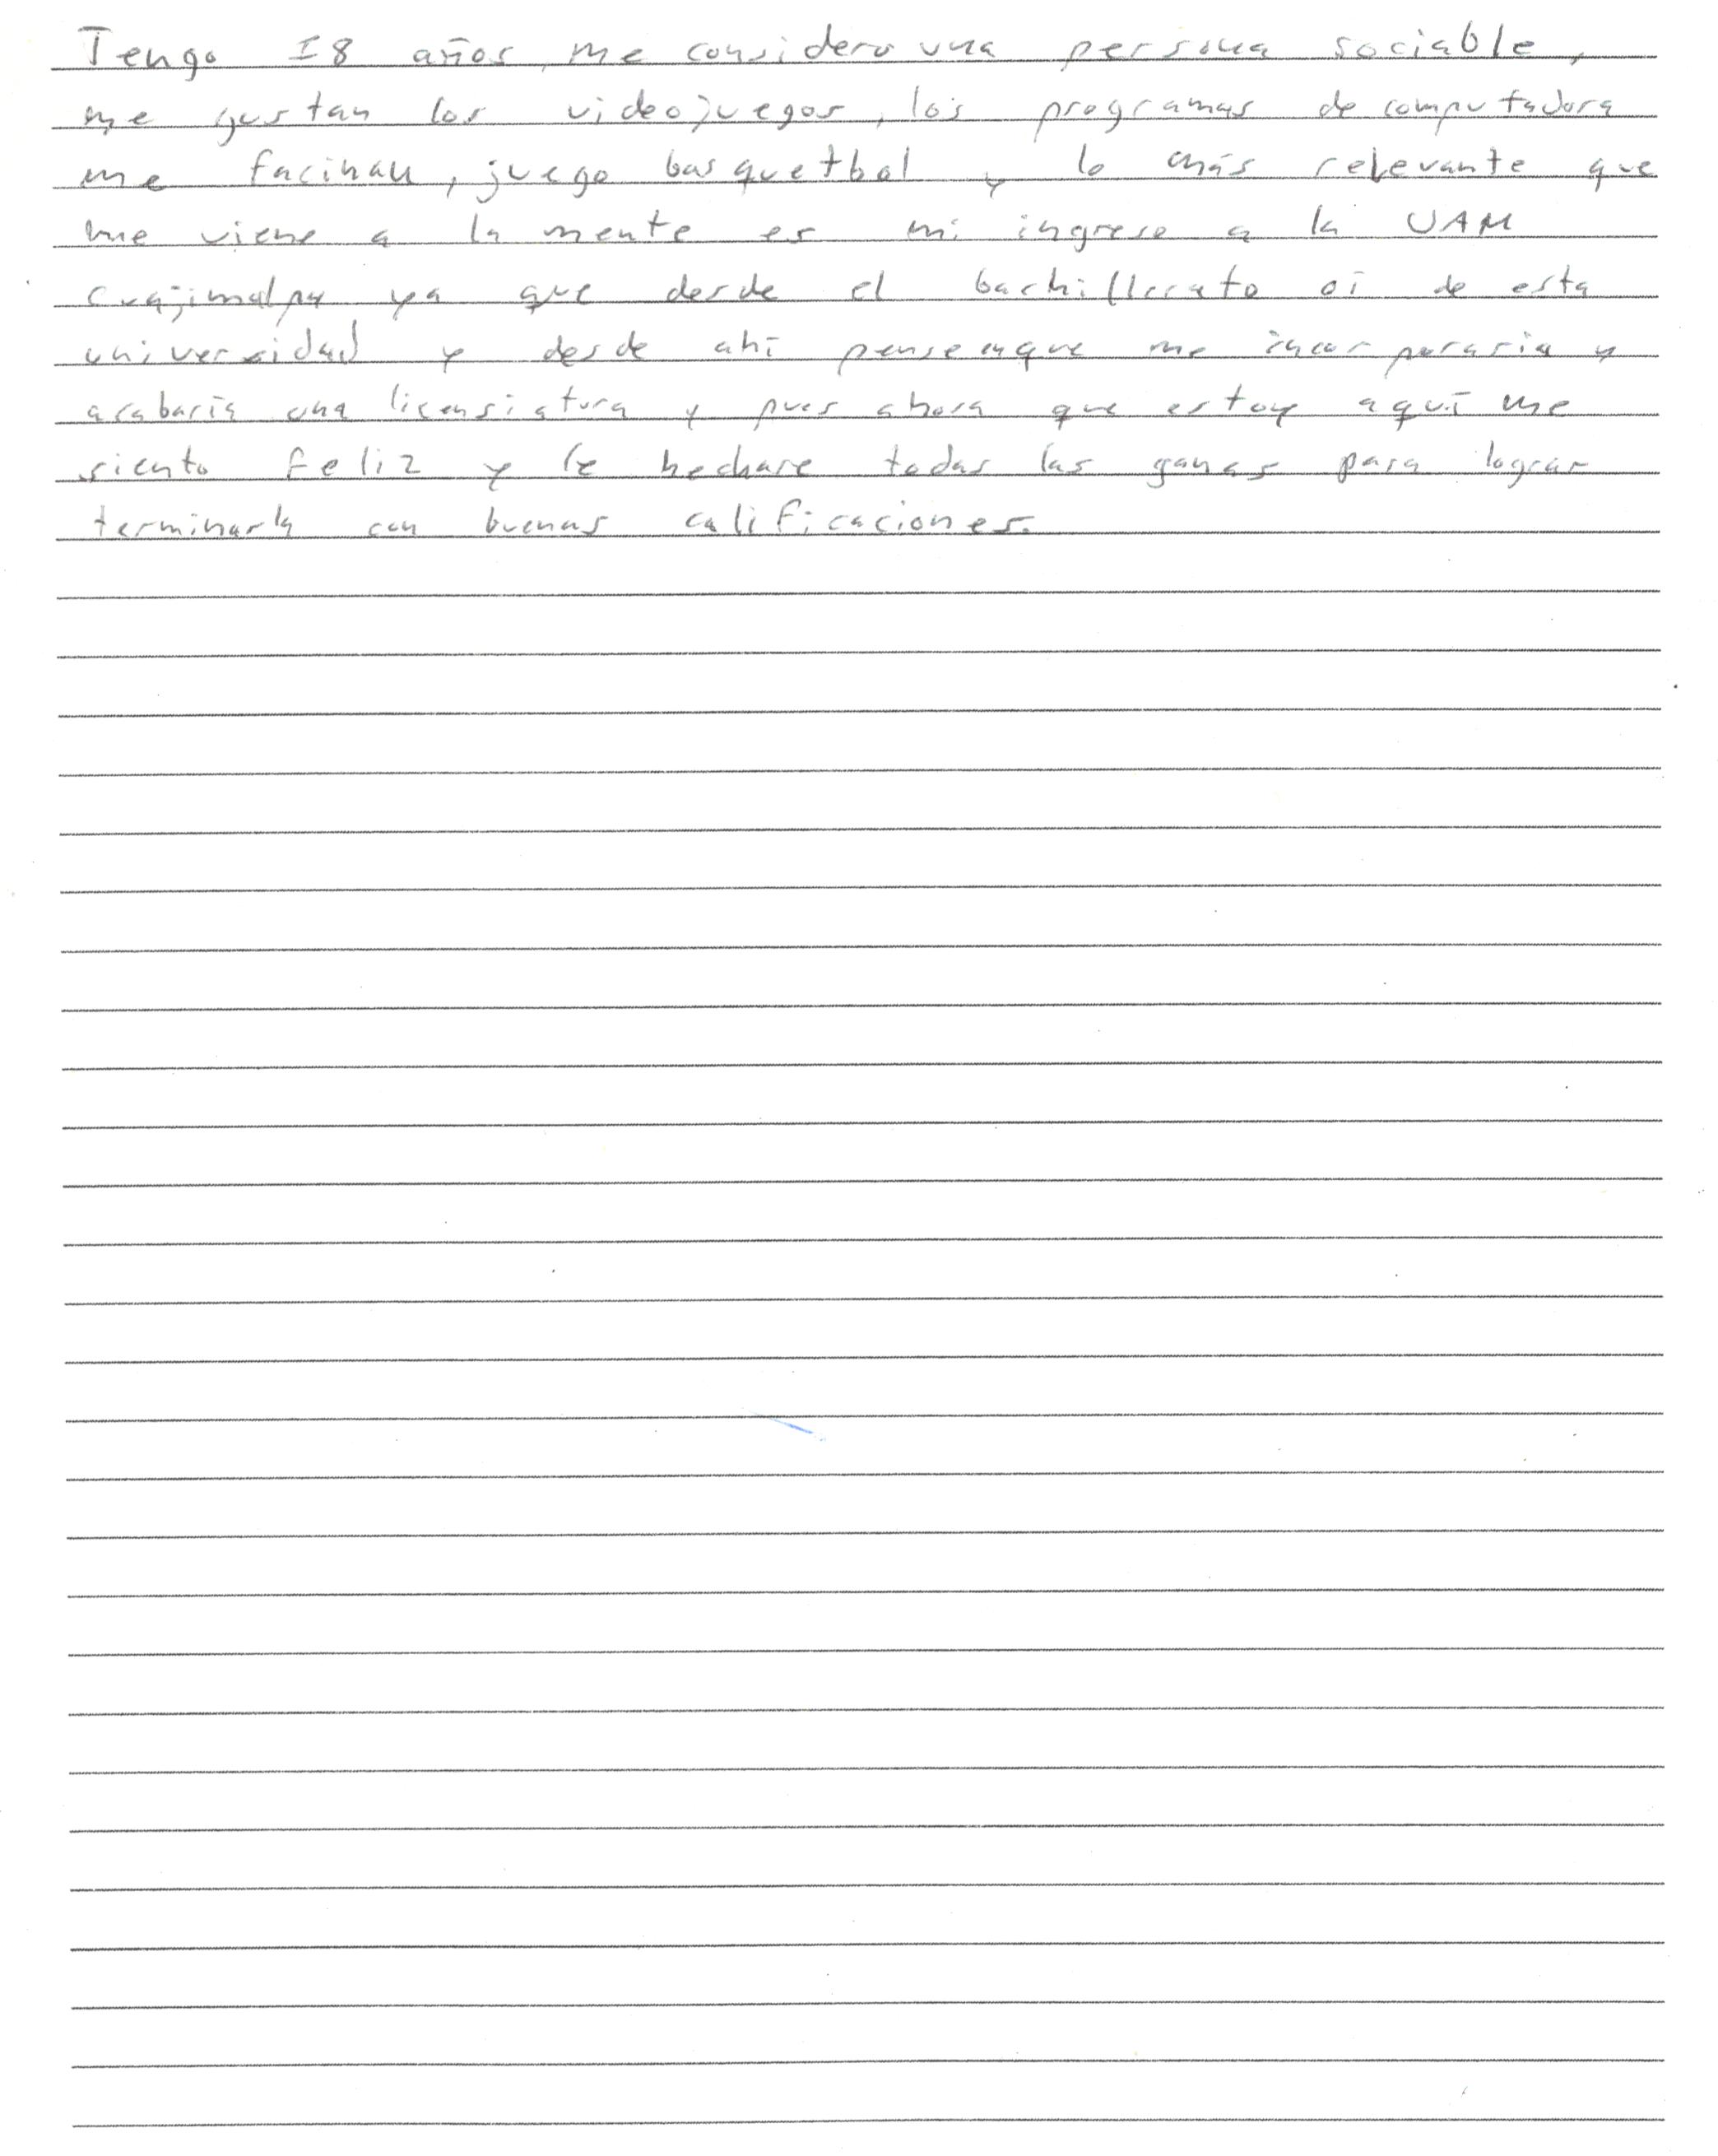 Tengo 18 años, me considero una persona sociable,
me gustan los videojuegos, los programas de computadora
me facinan, juego basquetbol y lo más relevante que
me viene a la mente es mi ingreso a la UAM
Cuajimalpa ya que desde el bachillerato oí de esta
universidad y desde ahí pense que me incorporaria y
acabaría una licensiatura y pues ahora que estoy aquí me
siento feliz y le hechare todas las ganas para lograr
terminarla con buenas calificaciones.